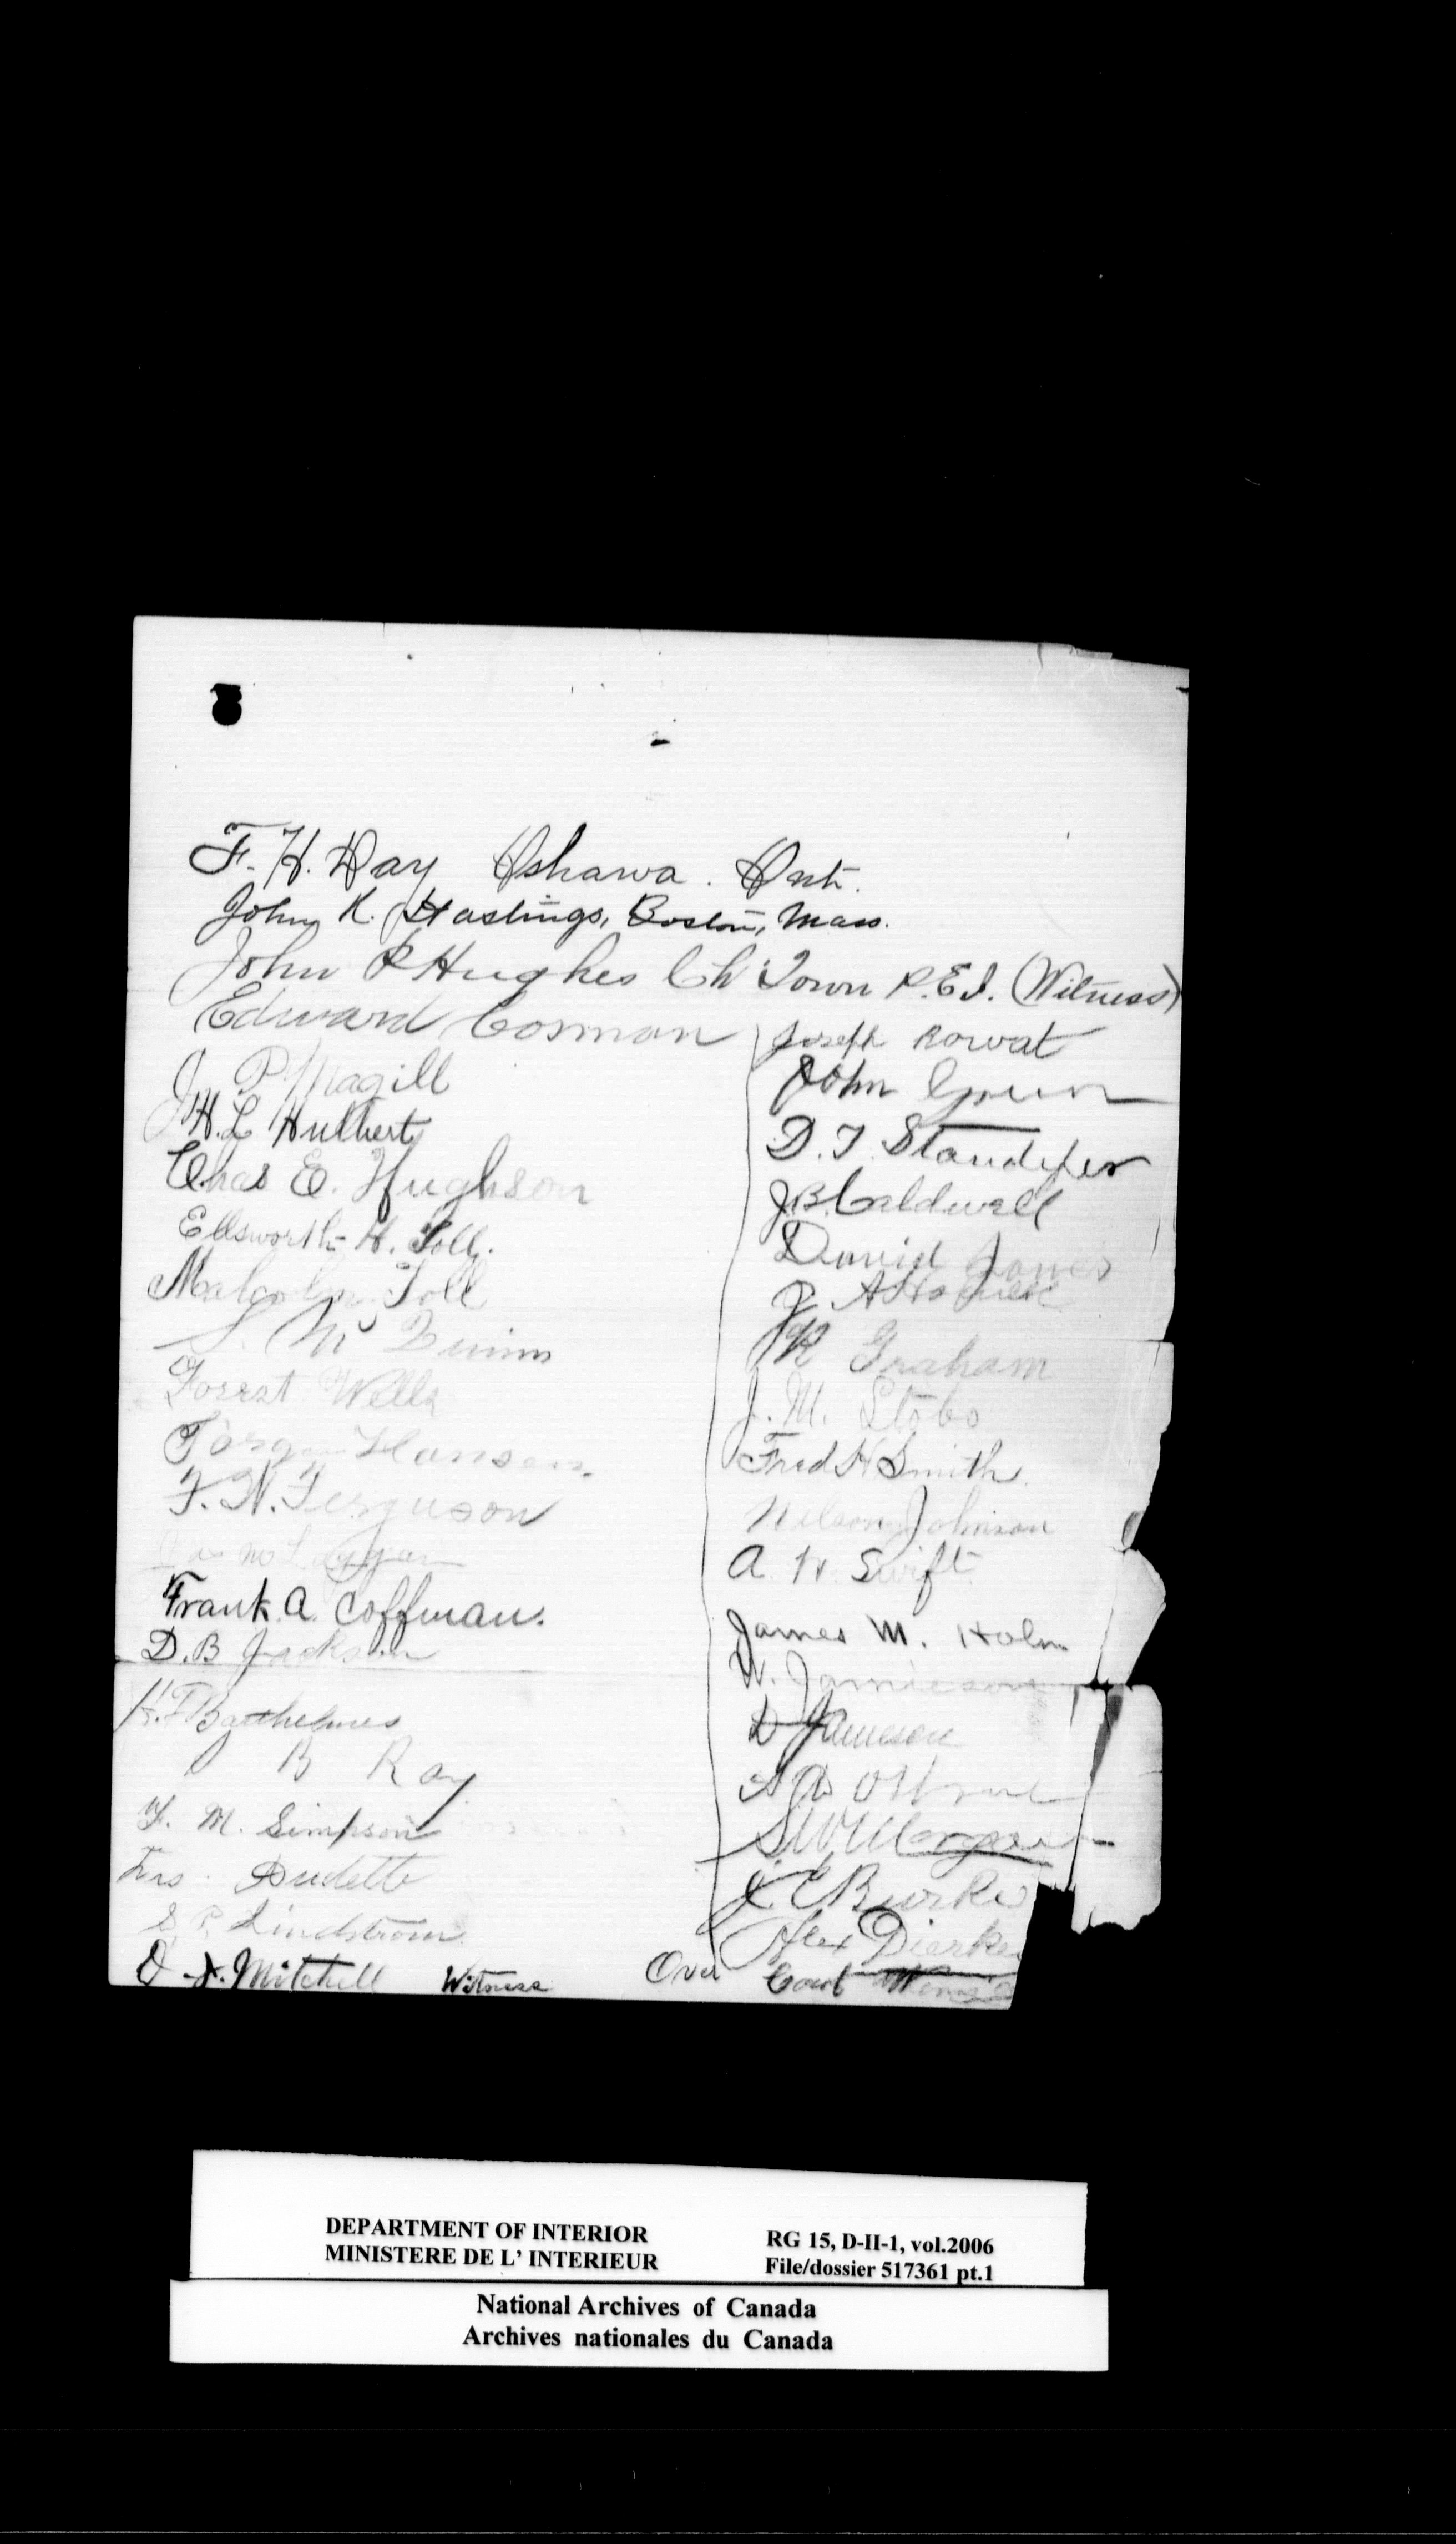 F. H. Day Oshawa. Ont.
John K. Hastings, Boston, Mass.
John P Hughes Ch Town P.E.I. (Witness)
Edward Cosman
J P Magill
H. L Hulbert
Chas E. Hughson
Ellsworth H. Toll.
Malcolm Toll
S. M Dunn
Forest Wells
Hansen
F. N. Ferguson
Frank A. Coffman.
D. B Jackson
H. F Barthelmes
B Ray
F. M. Simpson
Dudette
Lindstrom
Mitchell Witness
Joseph Rowat
John Green
D. T. Standifer
J. B. Caldwell
David Jones
J R Graham
J. M. Stobo
Fred H Smith
Nelson Johnson
A. W. Swift
James M. Holm
W. Jamieson
D Jameson
J. C Burke
Alex Dierke
Over
DEPARTMENT OF INTERIOR
MINISTERE DE L' INTERIEUR
RG 15, D-II-1, vol.2006
File/dossier 517361 pt.1
National Archives of Canada
Archives nationales du Canada